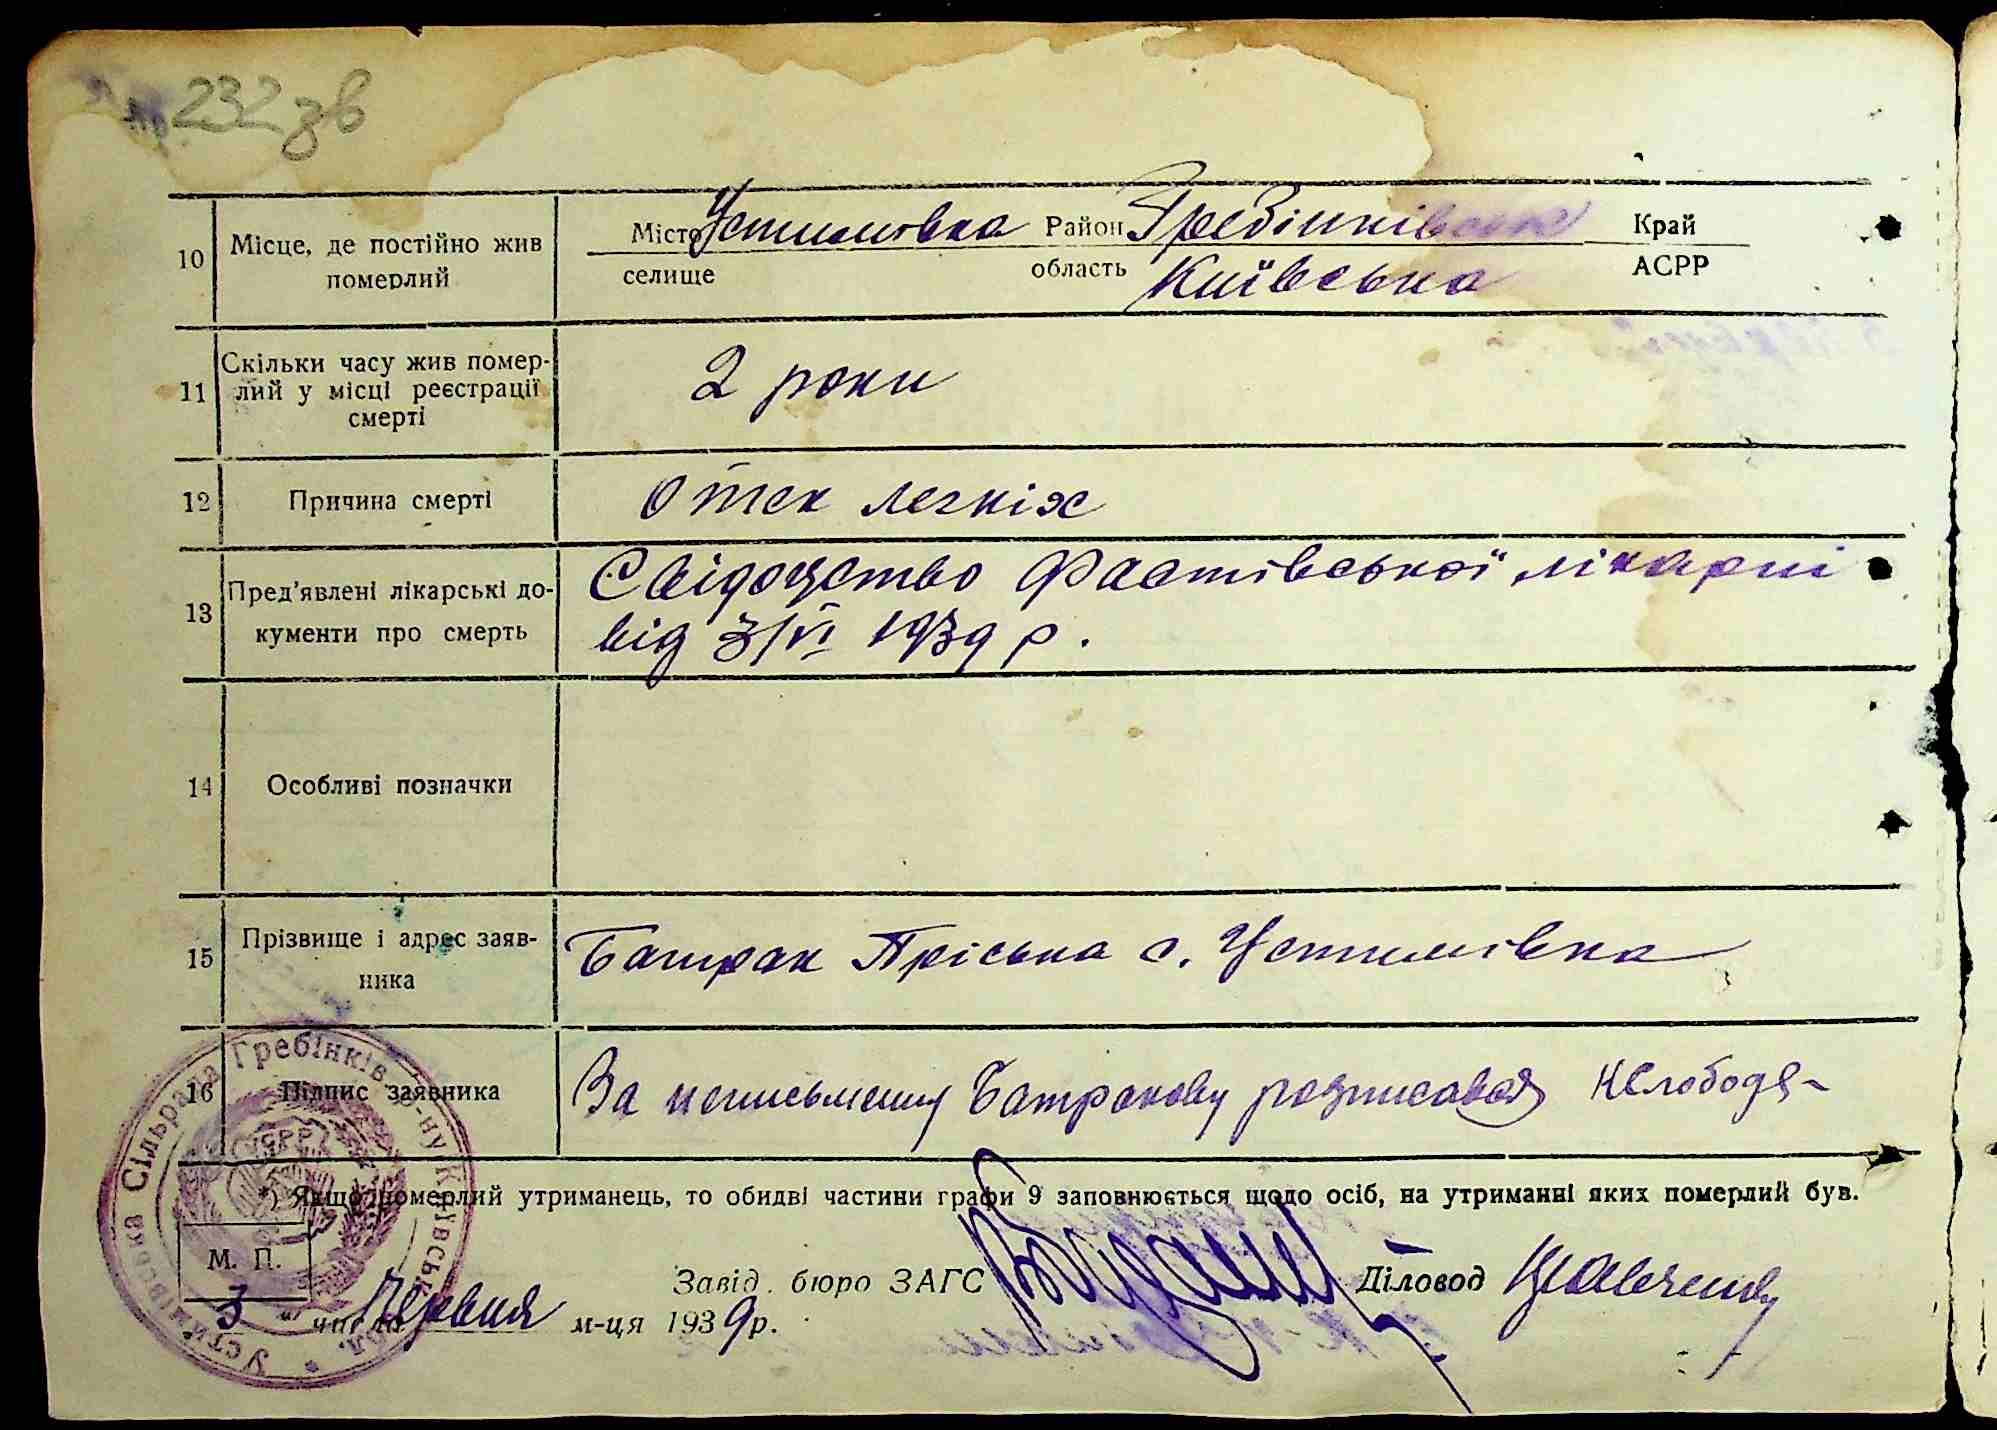 232 зв
10 Місце, де постійно жив померлий
Місто Устимовка Район Гребінківський Край
селище область Київська АСРР
11 Скільки часу жив помер-
лий у місці реєстрації
смерті
2 роки
12 Причина смерті Отек легкіх
13 Пред'явлені лікарські до-
кументи про смерть
Свідоцтво Фастівської лікарні
від 3/VI 1939 р.
14 Особливі позначки
15 Прізвище і адрес заяв-
ника
Батрак Пріська с. Устимівка
16 Підпис заявника
За неписьменну Батракову розписався
*) Якщо померлий утриманець, то обидві частини графи 9 заповнюється щодо осіб, на утриманні яких померлий був.
М. П.
Завід. бюро ЗАГС Діловод
3 числа Червня м-ця 1939 р.
Сільрада Гребінків р-ну Київськ
УСРР